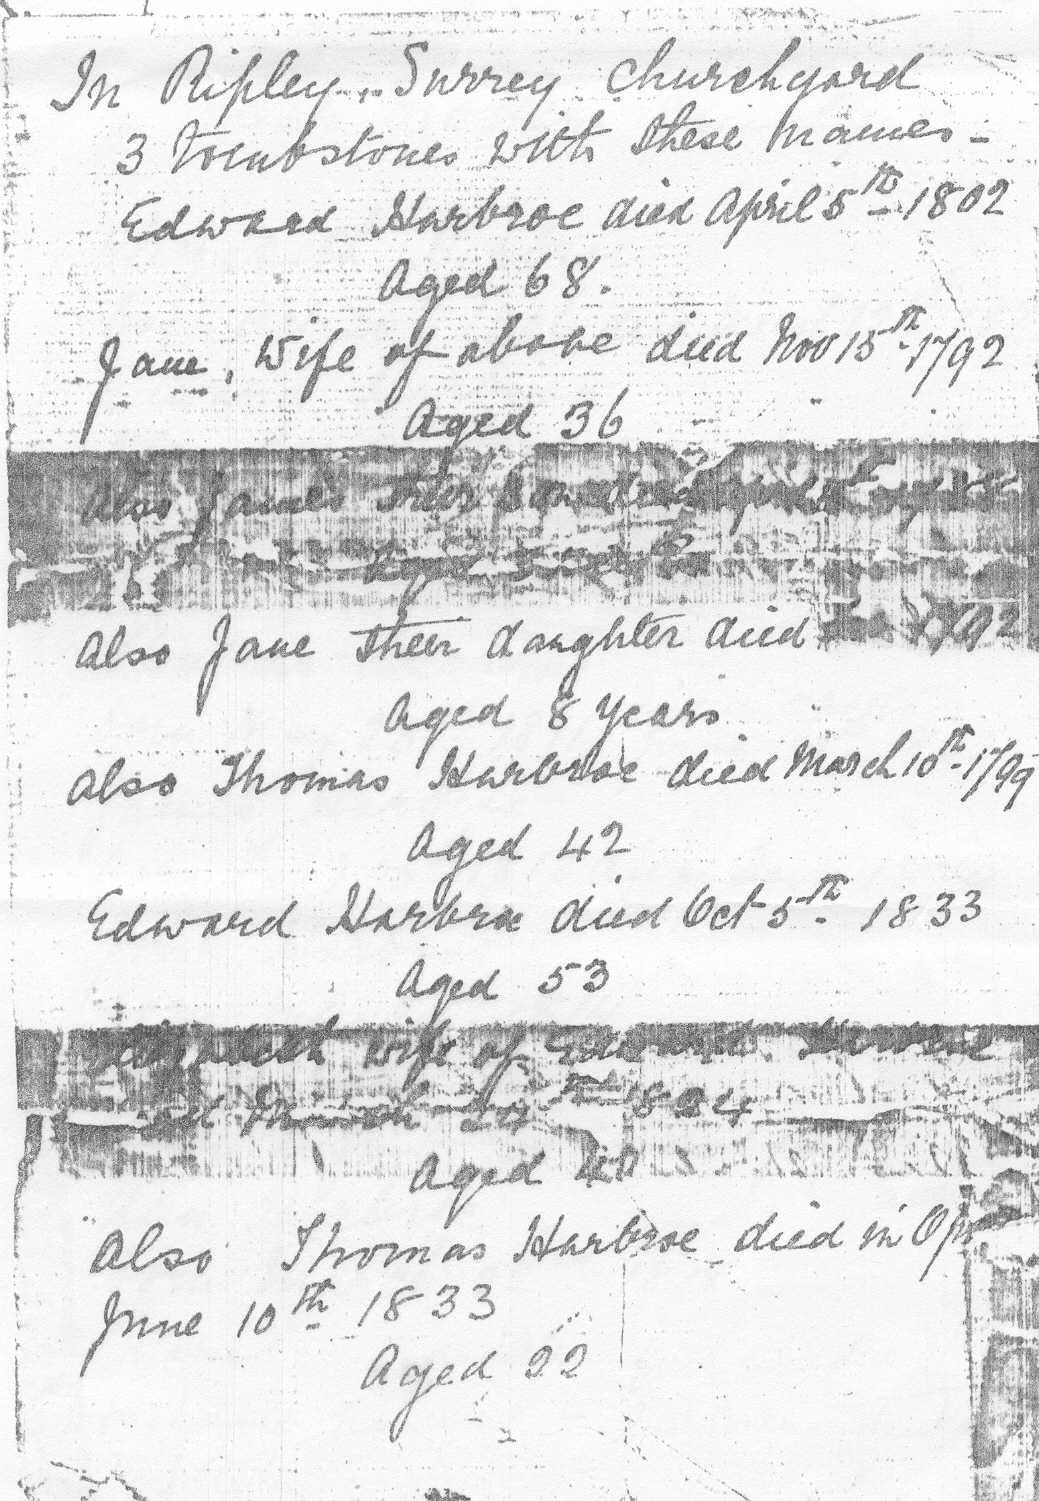 In Ripley, Surrey Churchyard
3 Tombstones with these names -
Edward Harbroe died April 5th 1802
Aged 68.
Jane, wife of above died Nov 15th 1792
Aged 36
Also James their son died
Aged
Also Jane their daughter died 1792
Aged 8 years
Also Thomas Harbroe died March 10th 1799
Aged 42
Edward Harbroe died Oct 5th 1833
Aged 53
wife of Edward Harbroe
March 1824
Aged
Also Thomas Harbroe died in
June 10th 1833
Aged 22